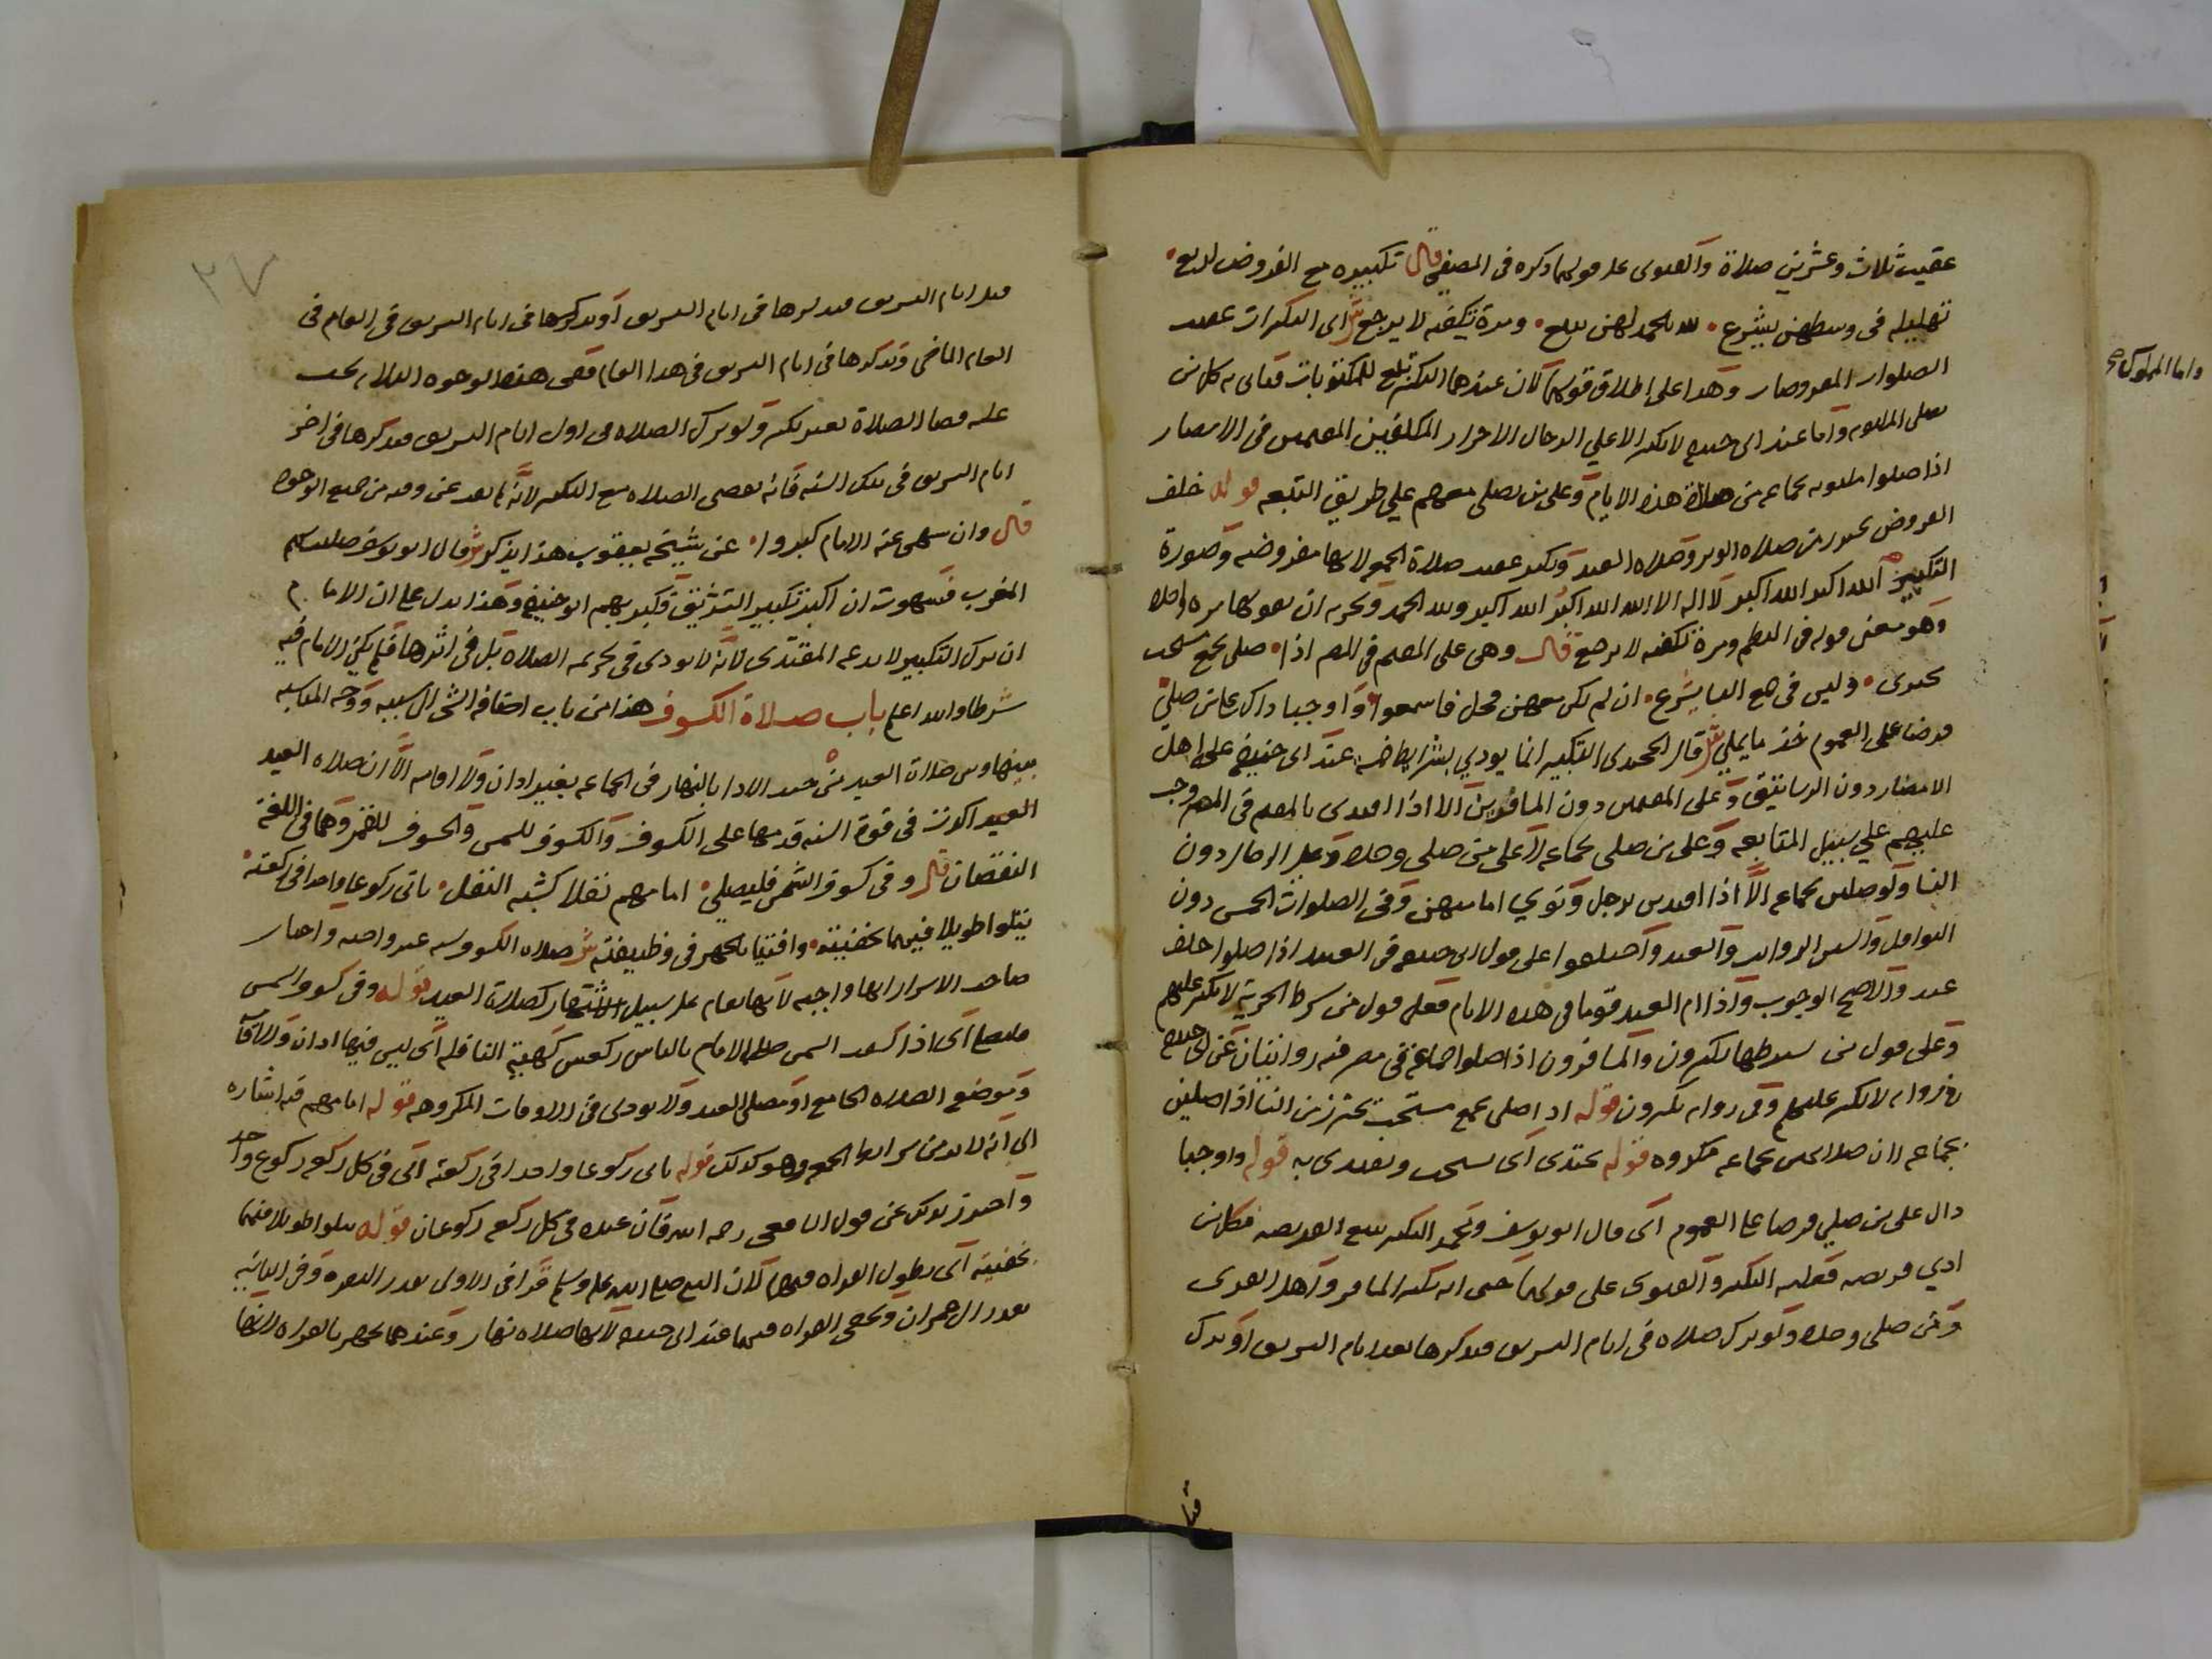 عقيب ثلاث وعشرين صلاة والفتوى على قولهما ذكره في المصفى قال تكبيره مع الفروض لبع
تهليله في وسطهن يشرع لله الحمد لهن يبع ومرة تكفيه لا يرجع ش اى التكبرات عقيب
الصلوات المفروضات وهذا على اطلاق قولهما لان عندهما التكبير تبع للمكتوبات فياتى به كل من
يصلى المكتوبه واما عند ابى حنيفه لا تكبير الا على الرجال الاحرار المكلفين المقيمين في الامصار
اذا صلوا مكتوبه بجماعه من صلاة هذه الايام وعلى من يصلى معهم على طريق التبعيه قوله خلف
الفروض يحترز من صلاه الوتر وصلاه العيد ويكبر عقيب صلاة الجمعه لانها مفروضه وصورة
التكبير الله اكبر الله اكبر لا اله الا الله الله اكبر الله اكبر ولله الحمد ويجزيه ان يقولها مره واحده
وهو معنى قوله في النظم ومرة تكفيه لا يرجع قال وهى على المقيم في المصر اذا صلى بجمع مستحب
يحتدى وليس في جمع النسا يشرع ان لم يكن معهن فحل فاسمعوا واوجبا ذاك على من صلى
فرضا على العموم خذ ما يملى ش قال الحجندى التكبير انما يودي بشرايط خمسه عند ابى حنيفه على اهل
الامصار دون الرساتيق وعلى المقيمين دون المسافرين الا اذا اقتدى بالمقيم في المصر وجب
عليهم على سبيل المتابعه وعلى من صلى بجماعه لا على من صلى وحده وعلى الرجال دون
النسا ولو صلين بجماعه الا اذا اقتدين برجل ونوي امامتهن وفي الصلوات الخمس دون
النوافل والسنن الرواتب والعيد واختلفوا على قول ابى حنيفه في العبيد اذا صلوا خلف
عبد والاصح الوجوب واذا ام العبد قوما في هذه الايام فعلى قول من شرط الحرية لا تكبير عليهم
وعلى قول من لم يشترطها يكبرون والمسافرون اذا صلوا جماعة في مصر فيه روايتان عن ابى حنيفه
في روايه لا تكبير عليهم وفي روايه يكبرون قوله اذا صلى بجمع مستحب يحترز من النسا اذا صلين
بجماعه لان صلاتهن بجماعه مكروه قوله يحتدى اى يستحب ويقتدى به قوله واوجبا
ذاك على من صلى فرضا على العموم اى قال ابو يوسف ومحمد التكبير يتبع الفريضه فكل من
ادي فريضه فعليه التكبير والفتوى على قولهما حتى انه يكبر المسافر واهل القرى
ومن صلى وحده ولو ترك صلاه في ايام التشريق فذكرها بعد ايام التشريق او ترك
فتا
قبل ايام التشريق فذكرها في ايام التشريق او تذكرها في ايام التشريق في العام في
العام الماضى وتذكرها في ايام التشريق في هذا العام ففى هذه الوجوه الثلاثه يجب
عليه قضا الصلاة بغير تكبير ولو ترك الصلاه في اول ايام التشريق فذكرها في اخر
ايام التشريق في تلك السنه فانه يقضى الصلاه مع التكبير لانه لم يعد عن وقته من جميع الوجوه
قال وان سهى عنه الامام كبروا عن شيخه يعقوب هذا يذكر ش قال ابو يوسف صليت بهم
المغرب فسهوت ان اكبر تكبير التشريق فكبر بهم ابو حنيفه وهذا يدل على ان الامام
ان ترك التكبير لا يدعه المقتدى لانه لا يودى في تحريمه الصلاة بل في اثرها فلم يكن الامام فيه
شرطا والله اعلم باب صلاة الكسوف هذا من باب اضافه الشى الى سببه ووجه المناسبه
بينها وبين صلاة العيد من حيث الادا بالنهار في الجماعه بغير اذان ولا اقامه الا ان صلاه العيد
العيد اكونها في قوة السنه قدمها على الكسوف والكسوف للشمس والخسوف للقمر وهما في اللغة
النقصان قال وفي كسوف الشمس فليصلى امامهم نفلا كشبه النفل ياتى ركوعا واحدا في ركعته
يتلوا طويلا فيهما بخفيته وافتيا بالجهر في وظيفته ش صلاه الكسوف سنه عند واحمد واختار
صاحب الاسرار انها واجبه لانها تقام على سبيل الاشتهار كصلاة العيد قوله وفي كسوف الشمس
فليصلى اى اذا كسفت الشمس صلى الامام بالناس ركعتين كهيية النافله اى ليس فيها اذان ولا اقامه
وموضع الصلاه الجامع او مصلى العيد ولا يودى في الاوقات المكروهه قوله امامهم فيه اشاره
الى انه لا بد من شرايط الجمعه وهو كذلك قوله ياتى ركوعا واحدا في ركعته اى في كل ركعه ركوع واحد
واحترز بذلك عن قول الشافعى رحمه الله فان عنده في كل ركعه ركوعان قوله يتلوا طويلا فيهما
بخفيته اى يطول القراه فيهما لان النبى صلى الله عليه وسلم قرا في الاولى بقدر البقره وفي الثانيه
بقدر ال عمران ويخفى القراه فيهما عند ابى حنيفه لانها صلاه نهار وعندهما يجهر بالقراه لانها
٣٧